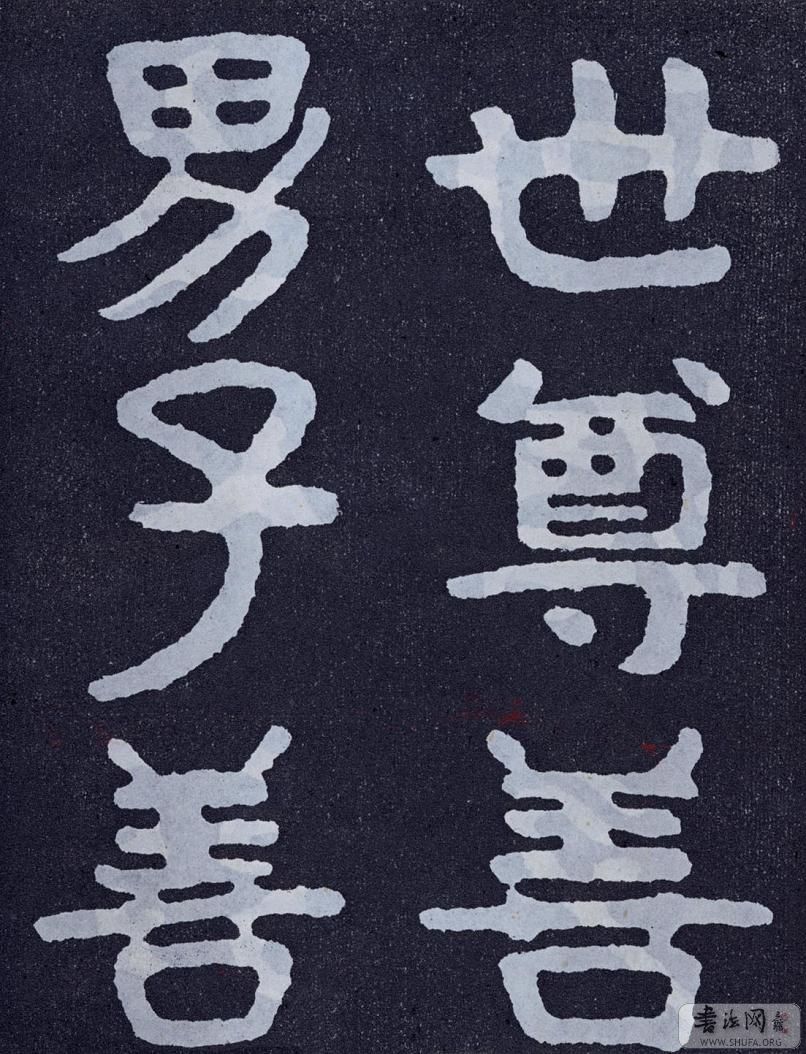 世尊善
男子善
書法网
WWW.SHUFA.ORG